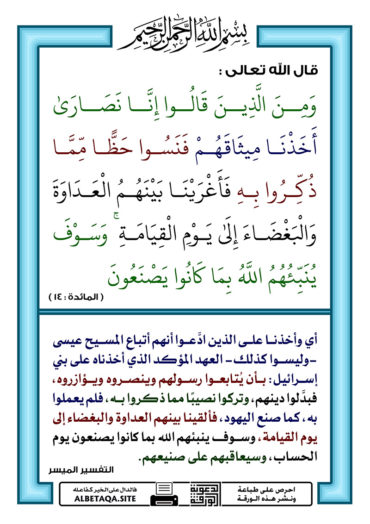 بسم الله الرحمن الرحيم
قال الله تعالى :
وَمِـنَ الَّذِيـنَ قَالُــوا إِنَّــا نَصَــارَىٰ
أَخَذْنَـا مِيثَاقَهُـمْ فَنَسُـوا حَظًّـا مِّمَّـا
ذُكِّـرُوا بِـهِ فَأَغْرَيْنَـا بَيْنَهُـمُ الْعَـدَاوَةَ
وَالْبَغْضَـاءَ إِلَىٰ يَـوْمِ الْقِيَامَـةِ ۚ وَسَـوْفَ
يُنَبِّئُهُمُ اللَّهُ بِمَا كَانُوا يَصْنَعُونَ
( المائدة : ١٤ )
أي وأخذنـا علـى الذين ادَّعـوا أنهم أتباع المسـيح عيسى
-وليســوا كذلـك- العهد المؤكـد الذي أخذناه على بني
إسـرائيل: بـأن يُتابعـوا رسـولهم وينصـروه ويـؤازروه،
فبدَّلوا دينهم، وتركوا نصيبًا مما ذكـروا بـه، فلم يعملوا
به، كما صنع اليهود، فألقينا بينهم العداوة والبغضاء إلى
يوم القيامة، وسـوف ينبئهم الله بما كانوا يصنعون يوم
الحساب، وسيعاقبهم على صنيعهم.
التفسير الميسر
احرص على طباعة
ونشر هذه الورقة
الدعوية
الورقة
فالدال على الخير كفاعله
ALBETAQA.SITE